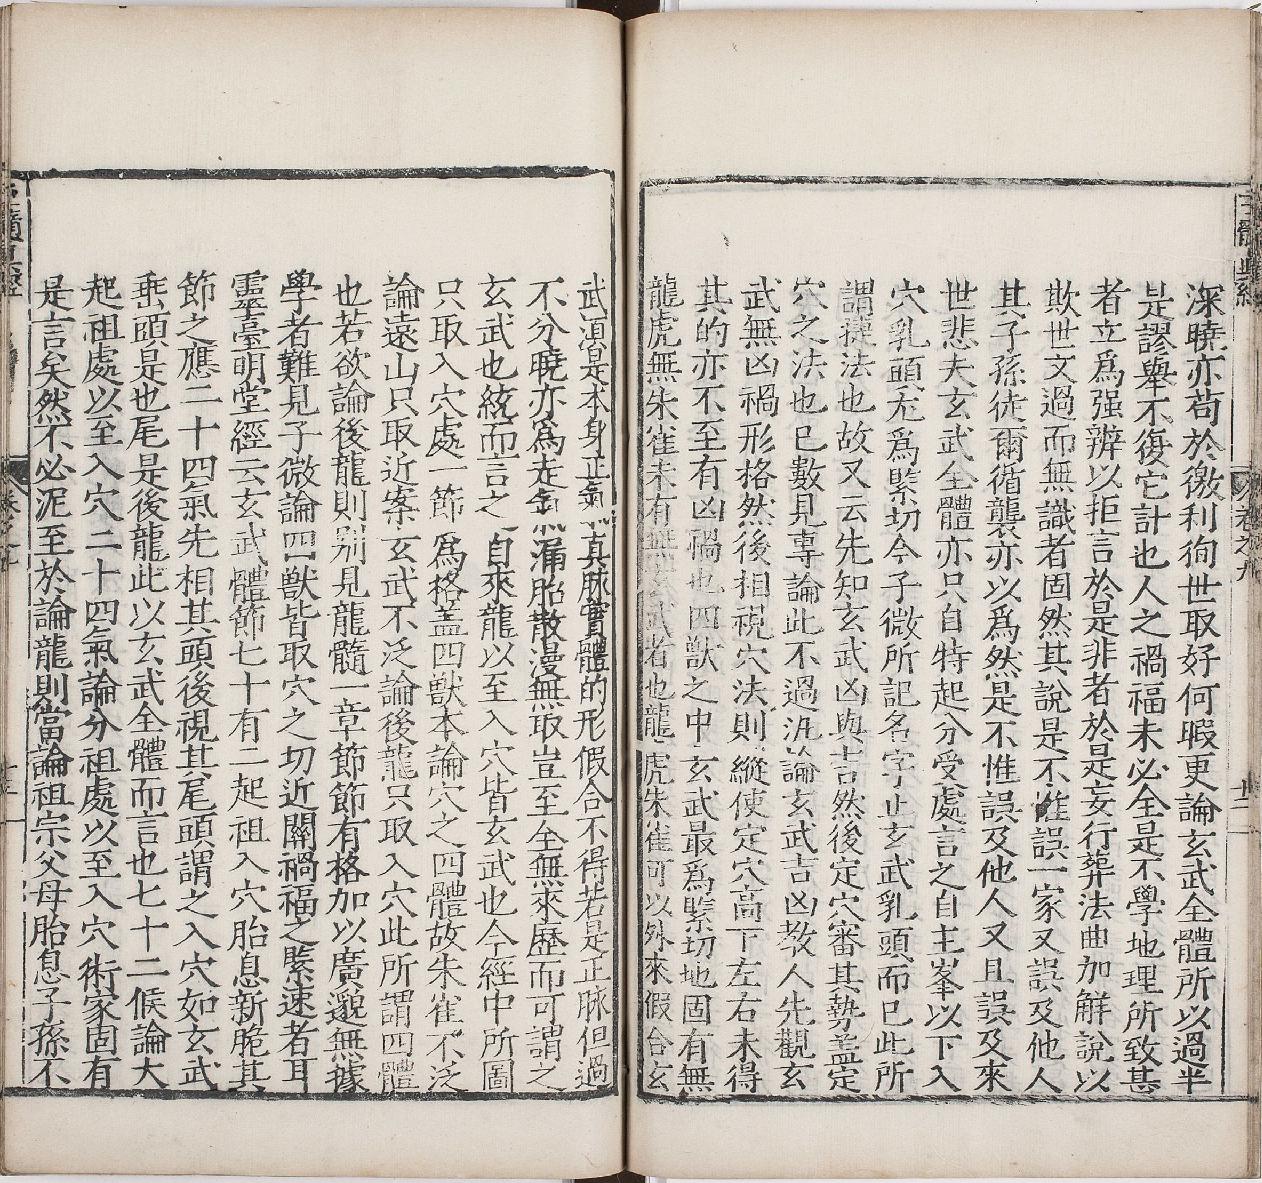 深曉亦苟於徼利徇世取好何暇更論玄武全體所以過半
是謬舉不復它計也人之禍福未必全是不學地理所致甚
者立爲强辨以拒言於是非者於是妄行葬法曲加解說以
欺世文過而無識者固然其說是不惟誤一家又誤及他人
其子孫徒爾循襲亦以爲然是不惟誤及他人又且誤及來
世悲夫玄武全體亦只自特起分受處言之自主峯以下入
穴乳頭尤爲緊切今子微所記名字止玄武乳頭而已此所
謂捷法也故又云先知玄武凶與吉然後定穴審其勢盖定
穴之法也已數見專論此不過汎論玄武吉凶教人先觀玄
武無凶禍形格然後相視穴法則縱使定穴高下左右未得
其的亦不至有凶禍也四獸之中玄武最爲緊切地固有無
龍虎無朱雀未有無玄武者也龍虎朱雀可以外來假合玄
武須是本身正氣真脉實體的形假合不得若是正脉但過
不分曉亦爲走氣漏胎散漫無取豈至全無來歷而可謂之
玄武也統而言之自來龍以至入穴皆玄武也今經中所圖
只取入穴處一節爲格蓋四獸本論穴之四體故朱雀不泛
論遠山只取近案玄武不泛論後龍只取入穴此所謂四體
也若欲論後龍則別見龍髓一章節節有格加以廣邈無據
學者難見子微論四獸皆取穴之切近關禍福之緊速者耳
靈臺明堂經云玄武體節七十有二起祖入穴胎息新脆其
節之應二十四氣先相其頭後視其尾頭謂之入穴如玄武
垂頭是也尾是後龍此以玄武全體而言也七十二候論大
起祖處以至入穴二十四氣論分祖處以至入穴術家固有
是言矣然不必泥至於論龍則當論祖宗父母胎息子孫不